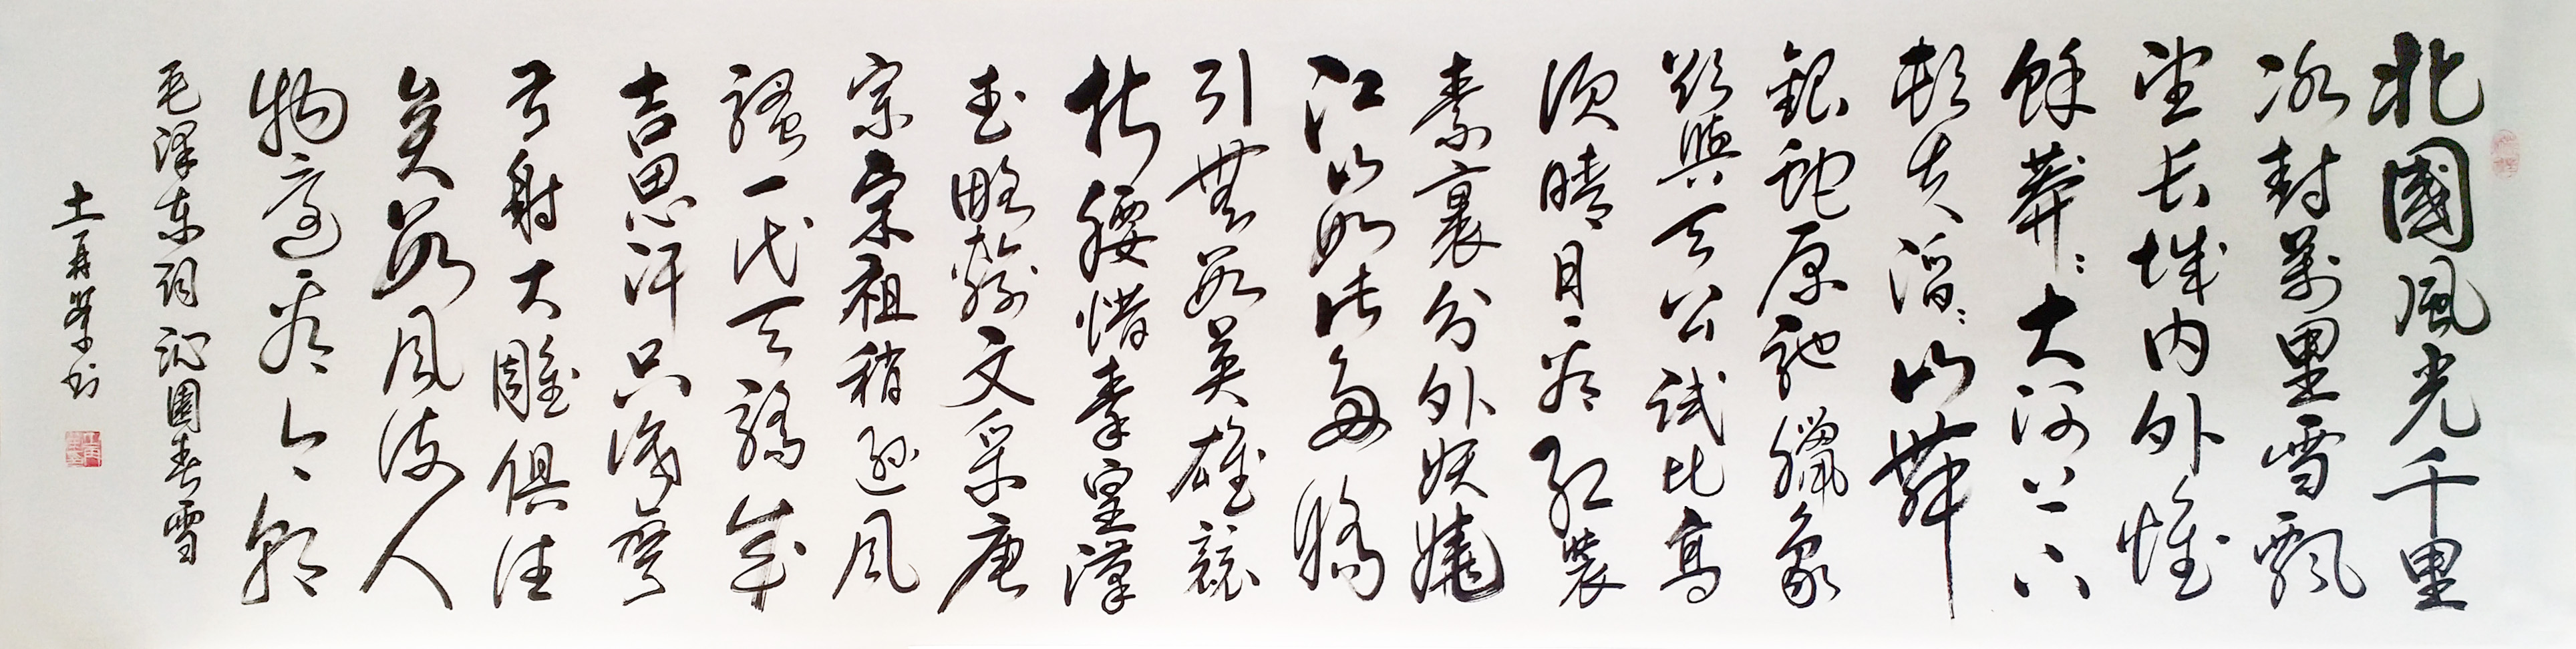 北國風光千里
冰封萬里雪飄
望长城内外惟
餘莽〻大河上下
頓失滔〻山舞
銀蛇原馳臘象
欲與天公試比高
须晴日看红裝
素裹分外妖嬈
江山如此多嬌
引無數英雄競
折腰惜秦皇漢
武略輸文采唐
宗宋祖稍逊風
騷一代天驕成
吉思汗只識彎
弓射大雕俱往
矣數風流人
物還看今朝
毛泽东词沁園春雪
再书